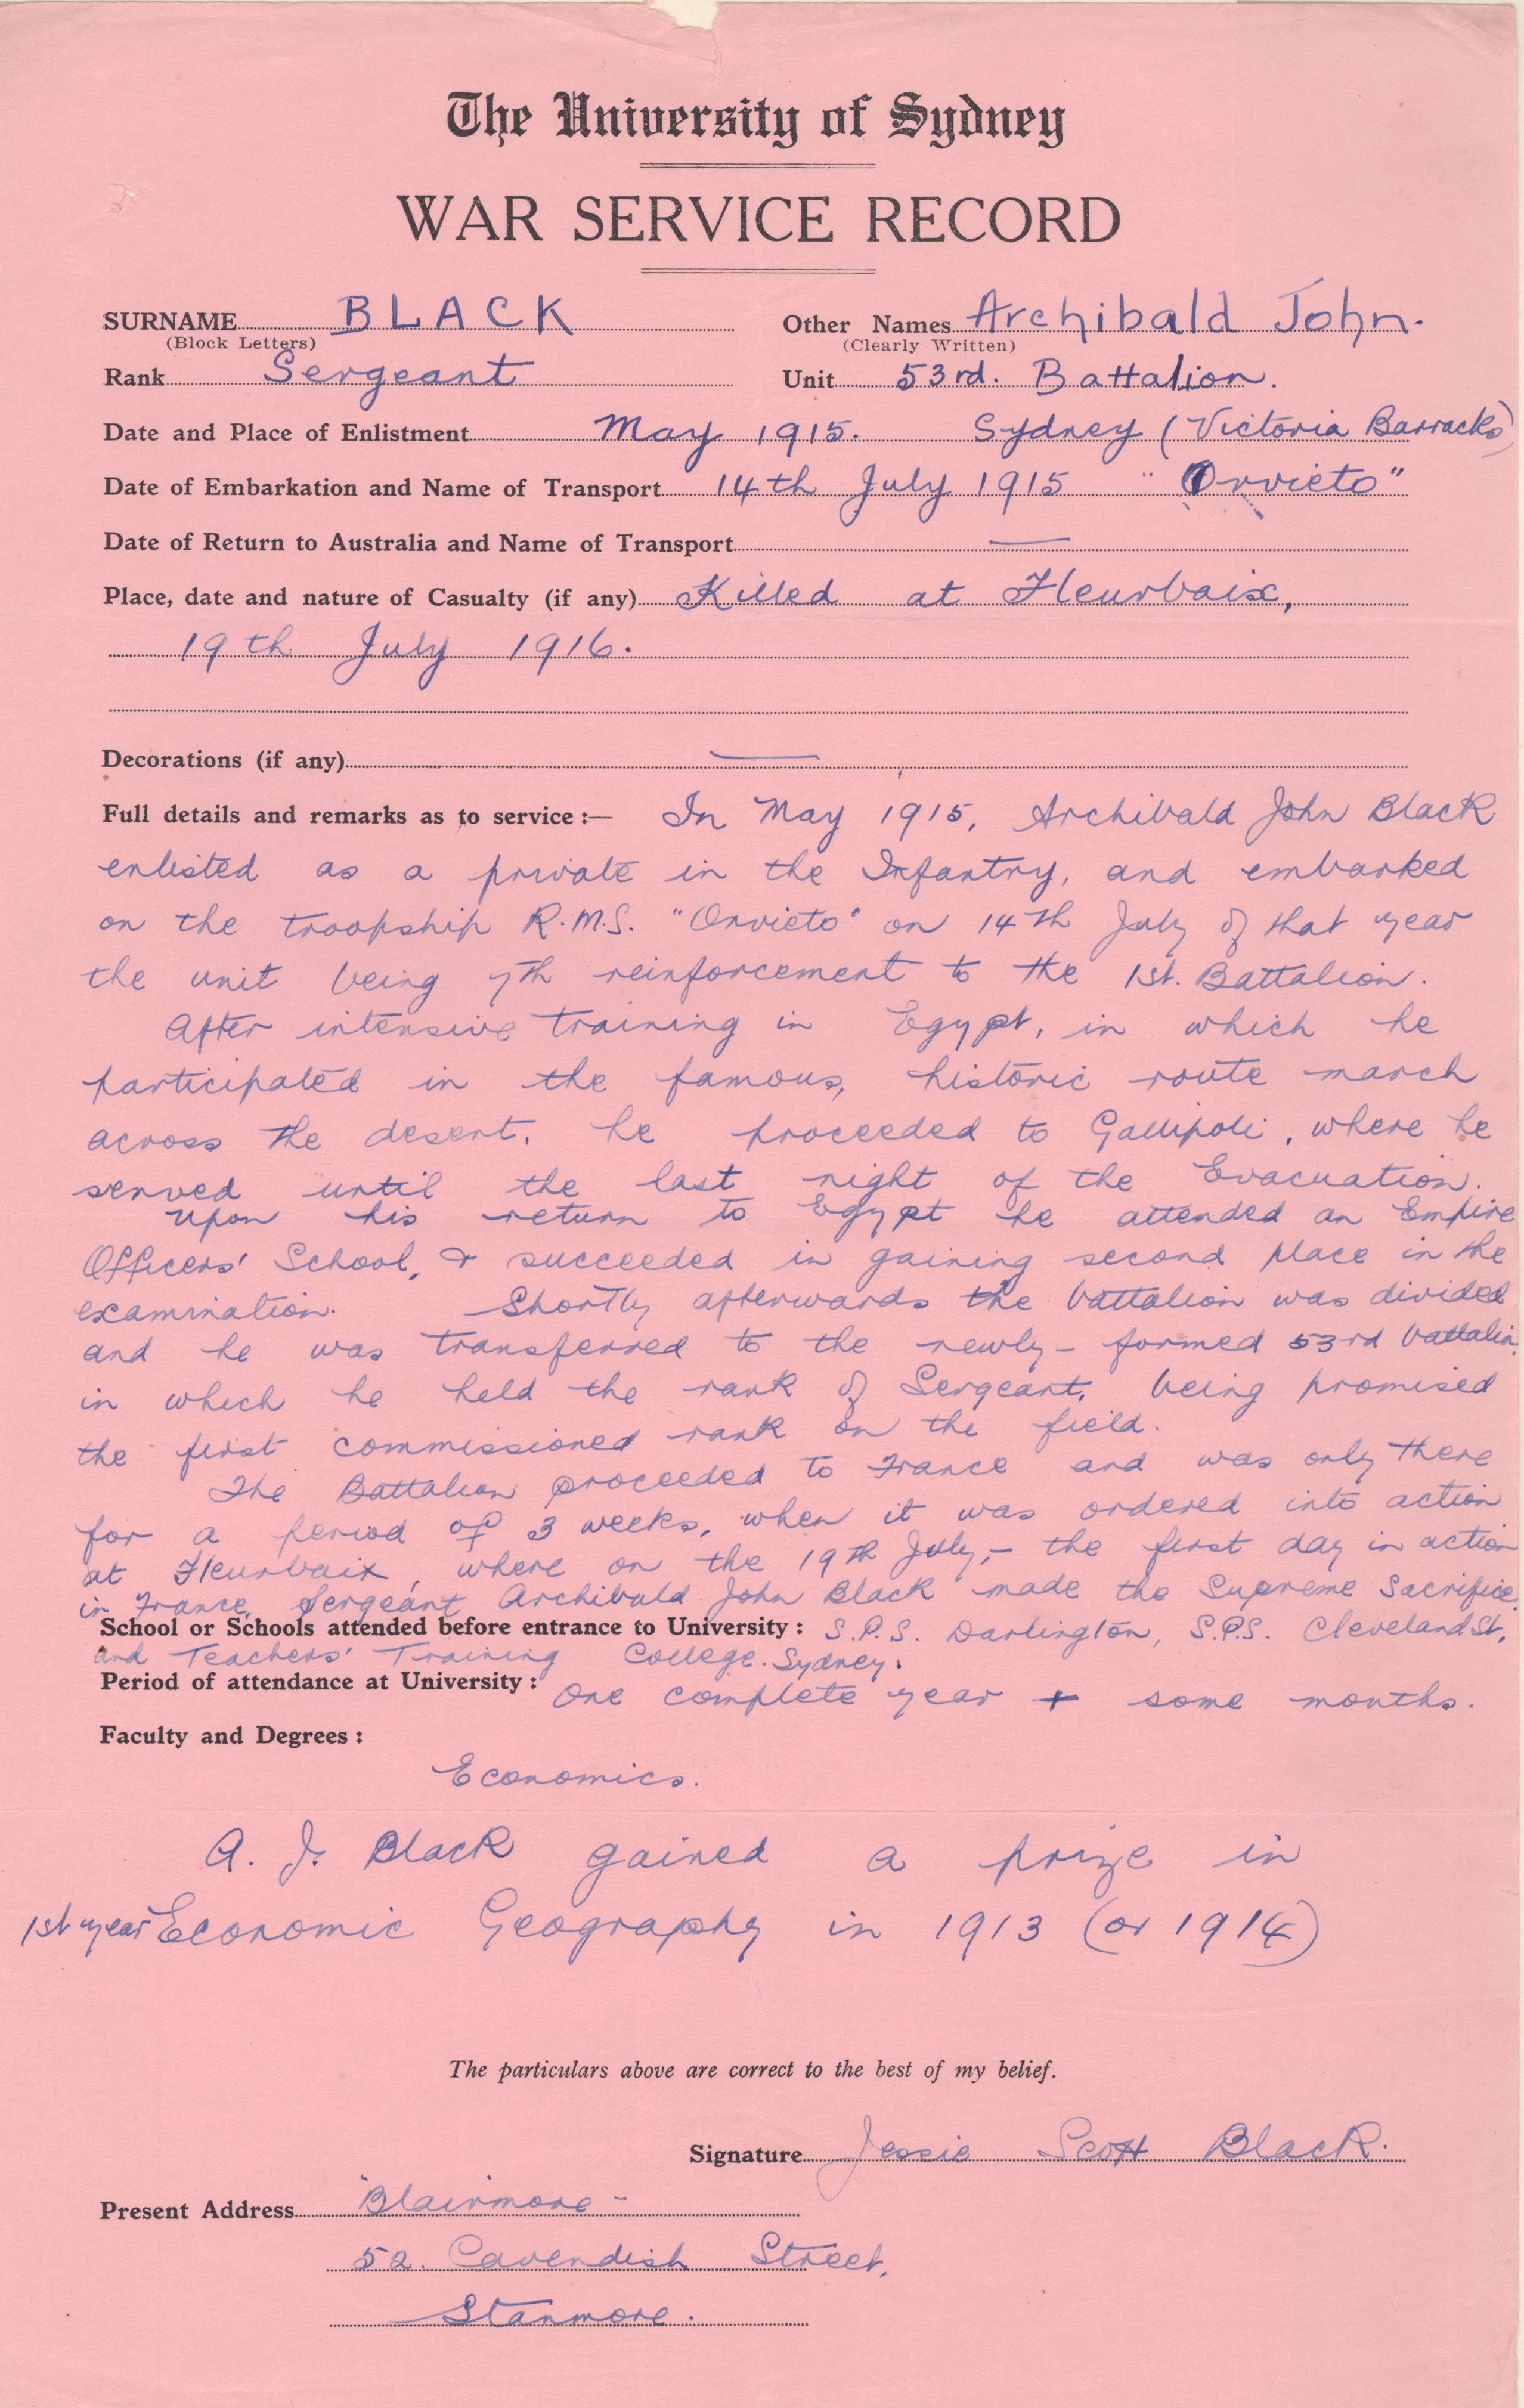 The University of Sydney
WAR SERVICE RECORD
SURNAME BLACK Other Names Archibald John.
(Block Letters) (Clearly Written)
Rank Sergeant Unit 53rd. Battalion.
Date and Place of Enlistment May 1915. Sydney (Victoria Barracks)
Date of Embarkation and Name of Transport 14th July 1915 "Orvieto"
Date of Return to Australia and Name of Transport —
Place, date and nature of Casualty (if any) Killed at Fleurbaix,
19th July 1916.
Decorations (if any) —
Full details and remarks as to service :— In May 1915, Archibald John Black
enlisted as a private in the Infantry, and embarked
on the troopship R.M.S. "Orvieto" on 14th July of that year
the unit being 7th reinforcement to the 1st. Battalion.
After intensive training in Egypt, in which he
participated in the famous, historic route march
across the desert, he proceeded to Gallipoli, where he
served until the last night of the Evacuation.
Upon his return to Egypt he attended an Empire
Officers' School, & succeeded in gaining second place in the
examination. Shortly afterwards the battalion was divided
and he was transferred to the newly-formed 53rd battalion
in which he held the rank of Sergeant, being promised
the first commissioned rank on the field.
The Battalion proceeded to France and was only there
for a period of 3 weeks, when it was ordered into action
at Fleurbaix, where on the 19th July,- the first day in action
in France, Sergeant Archibald John Black made the Supreme Sacrifice.
School or Schools attended before entrance to University : S.P.S. Darlington, S.P.S. Cleveland St,
and Teachers' Training College. Sydney.
Period of attendance at University : One complete year + some months.
Faculty and Degrees :
Economics.
A. J. Black gained a prize in
1st year Economic Geography in 1913 (or 1914)
The particulars above are correct to the best of my belief.
Signature Jessie Scott Black.
Present Address "Blairmore"
52. Cavendish Street,
Stanmore.